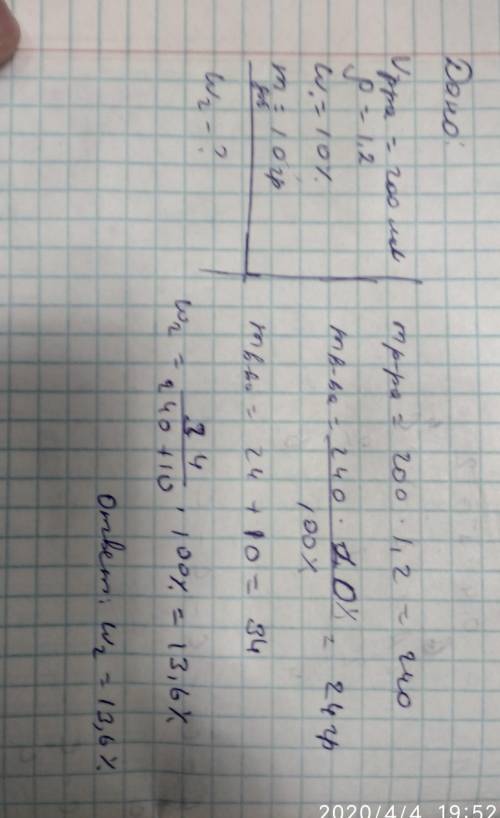 Дано:
Vр-ра = 200 мл
ρ = 1,2
w₁ = 10%
m = 10 гр
w₂ - ?
mр-ра = 200 · 1,2 = 240
mв-ва = 240 · 10% / 100% = 24 гр
mв-ва = 24 + 10 = 34
w₂ = 34 / 240 + 10 · 100% = 13,6%
Ответ: w₂ = 13,6%
2020/4/4 19:52